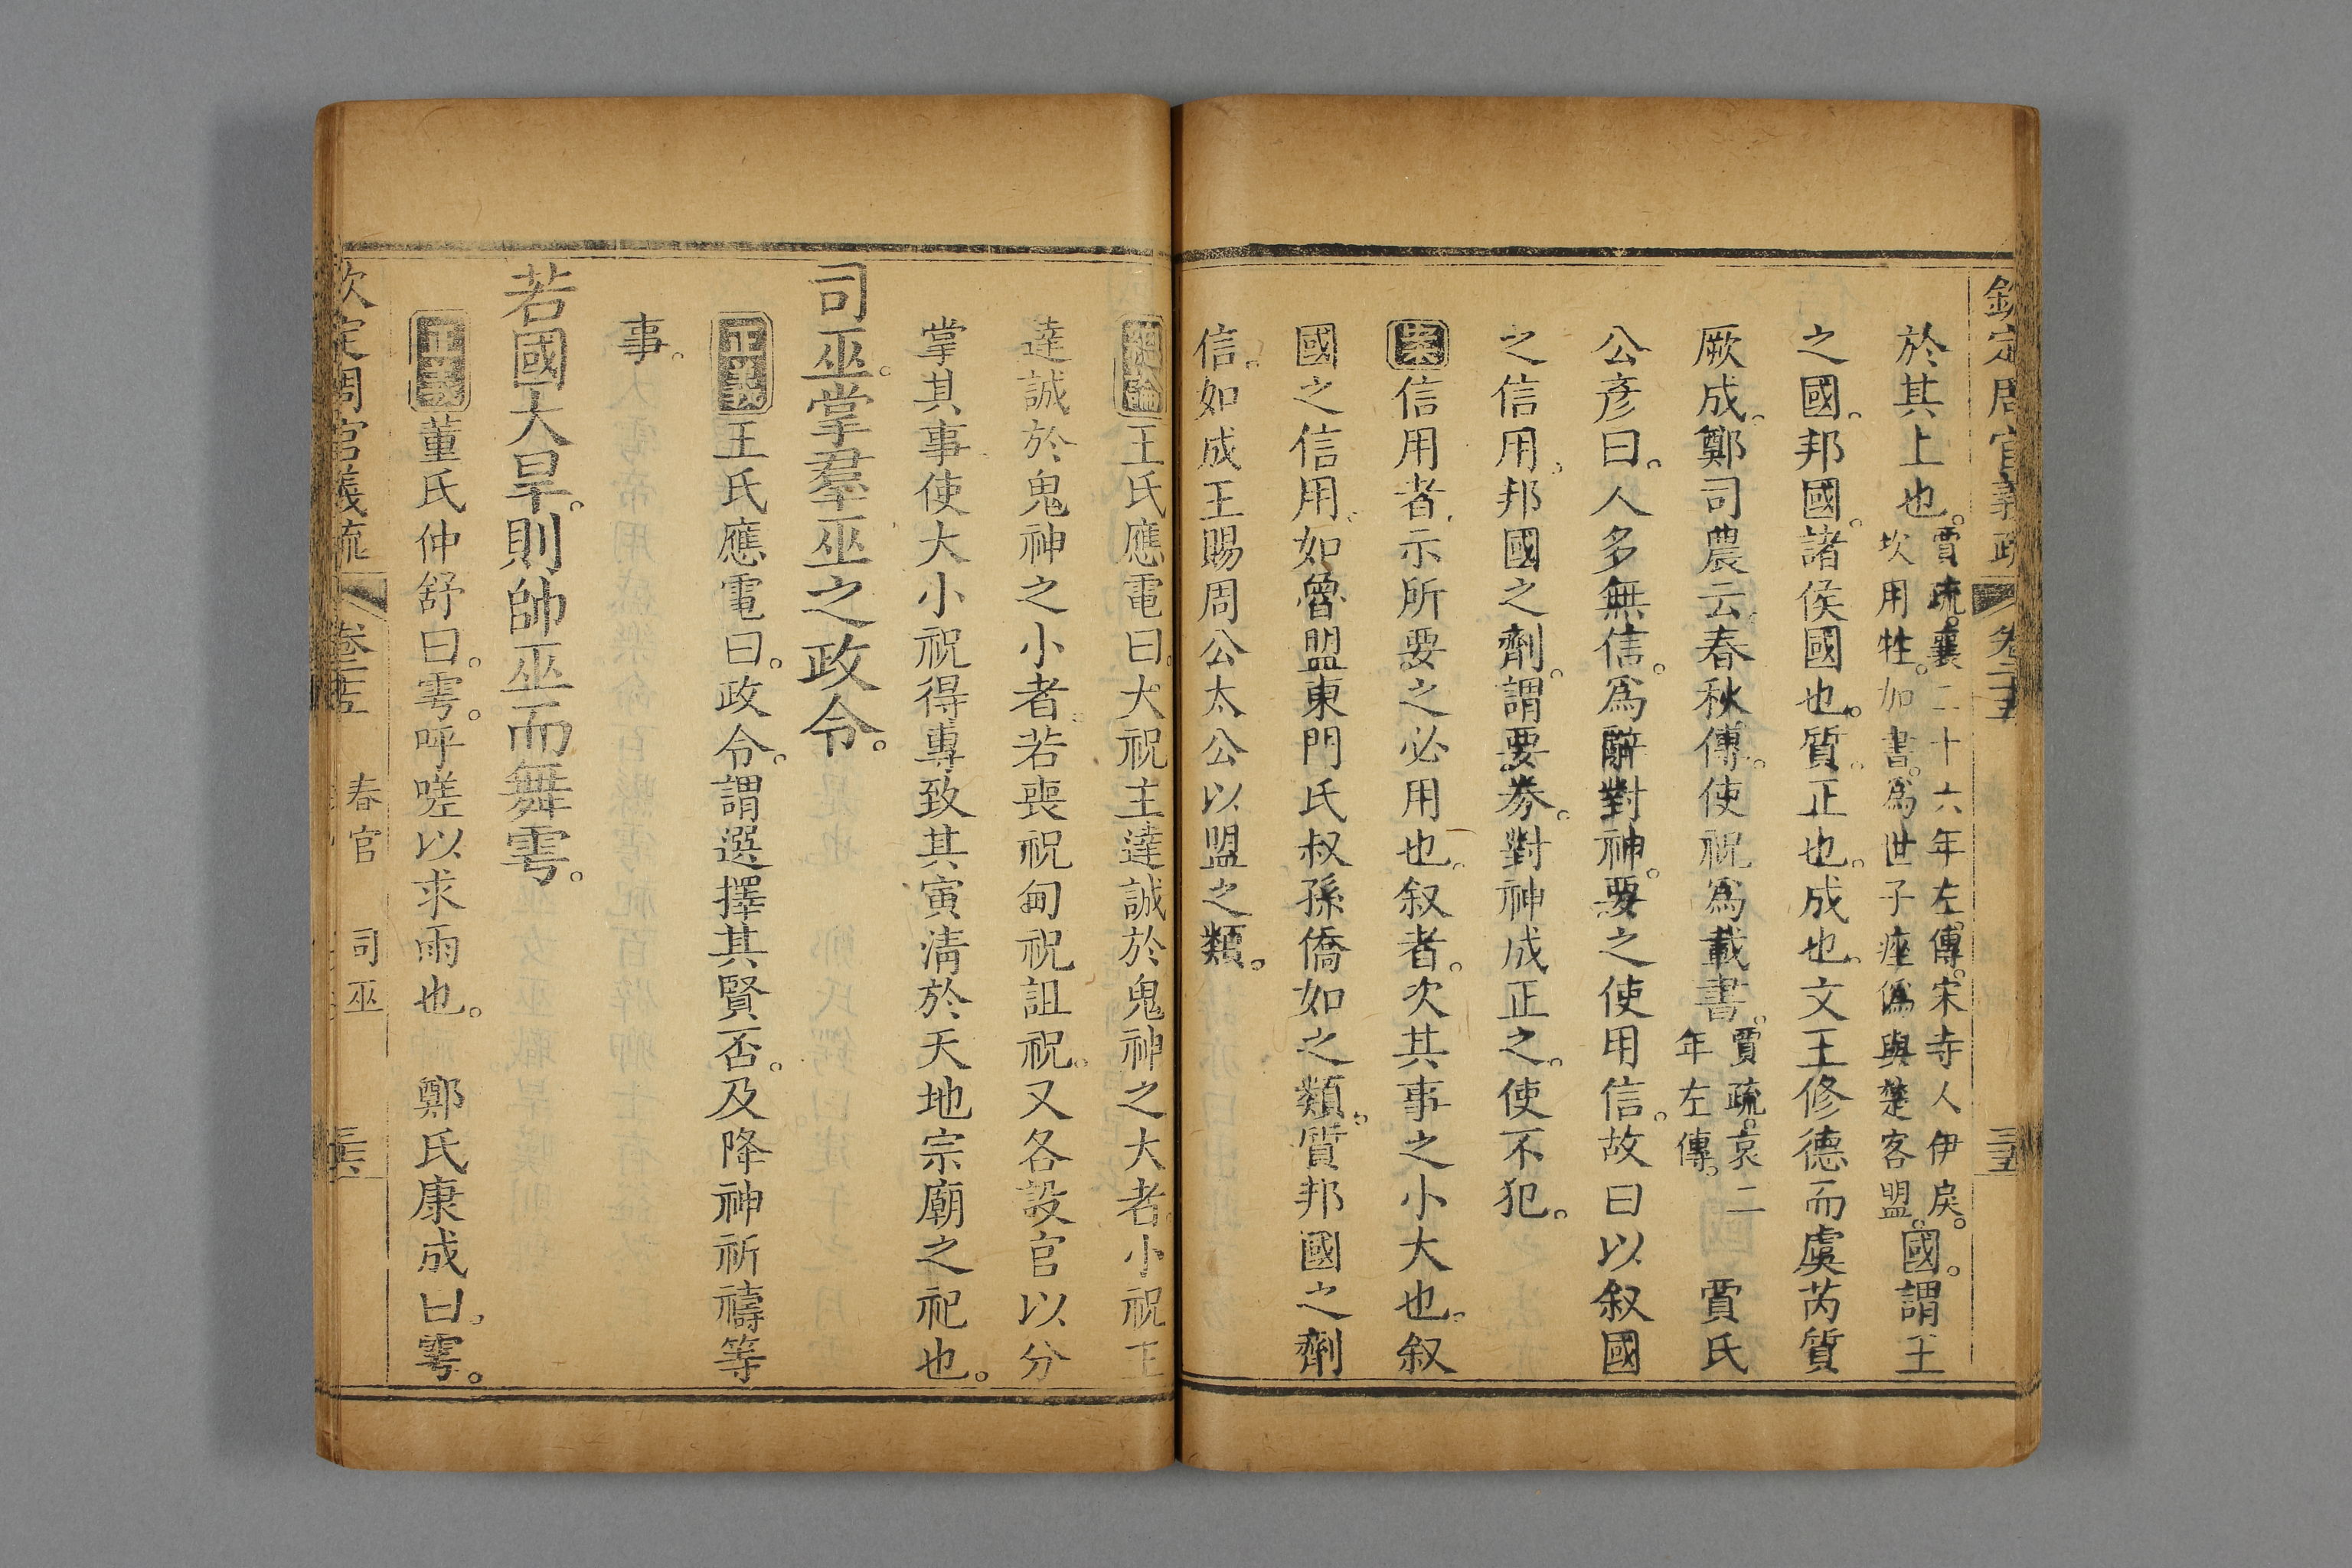 欽定周官義疏 卷二十五
於其上也。賈疏。襄二十六年左傳。宋寺人伊戾。坎用牲。加書。爲世子痤僞與楚客盟。國。謂王
之國。邦國。諸侯國也。質。正也。成也。文王修德而虞芮質
厥成。鄭司農云。春秋傳。使祝爲載書。賈疏。哀二年左傳。 賈氏
公彦曰。人多無信。爲辭對神。要之使用信。故曰以叙國
之信用。邦國之劑。謂要券。對神成正之。使不犯。
案信用者。示所要之必用也。叙者。次其事之小大也。叙
國之信用。如魯盟東門氏叔孫僑如之類。質邦國之劑
信。如成王賜周公太公以盟之類。
總論王氏應電曰。大祝主達誠於鬼神之大者。小祝主
達誠於鬼神之小者。若喪祝甸祝詛祝。又各設官以分
掌其事。使大小祝得專致其寅淸於天地宗廟之祀也。
司巫。掌羣巫之政令。
正義王氏應電曰。政令。謂選擇其賢否。及降神祈禱等
事。
若國大旱。則帥巫而舞雩。
正義董氏仲舒曰。雩。呼嗟以求雨也。 鄭氏康成曰。雩。
欽定周官義疏 卷二十五 春官 司巫